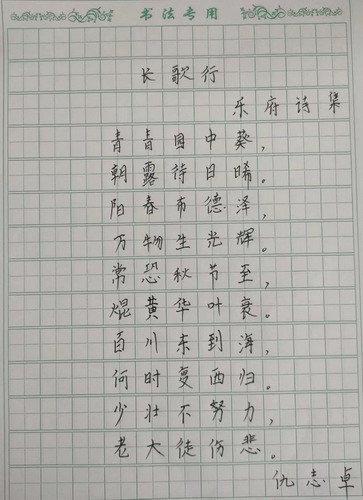 书法专用
长歌行
乐府诗集
青青园中葵，
朝露诗日晞。
阳春布德泽，
万物生光辉。
常恐秋节至，
焜黄华叶衰。
百川东到海，
何时复西归。
少壮不努力，
老大徒伤悲。
仇志卓